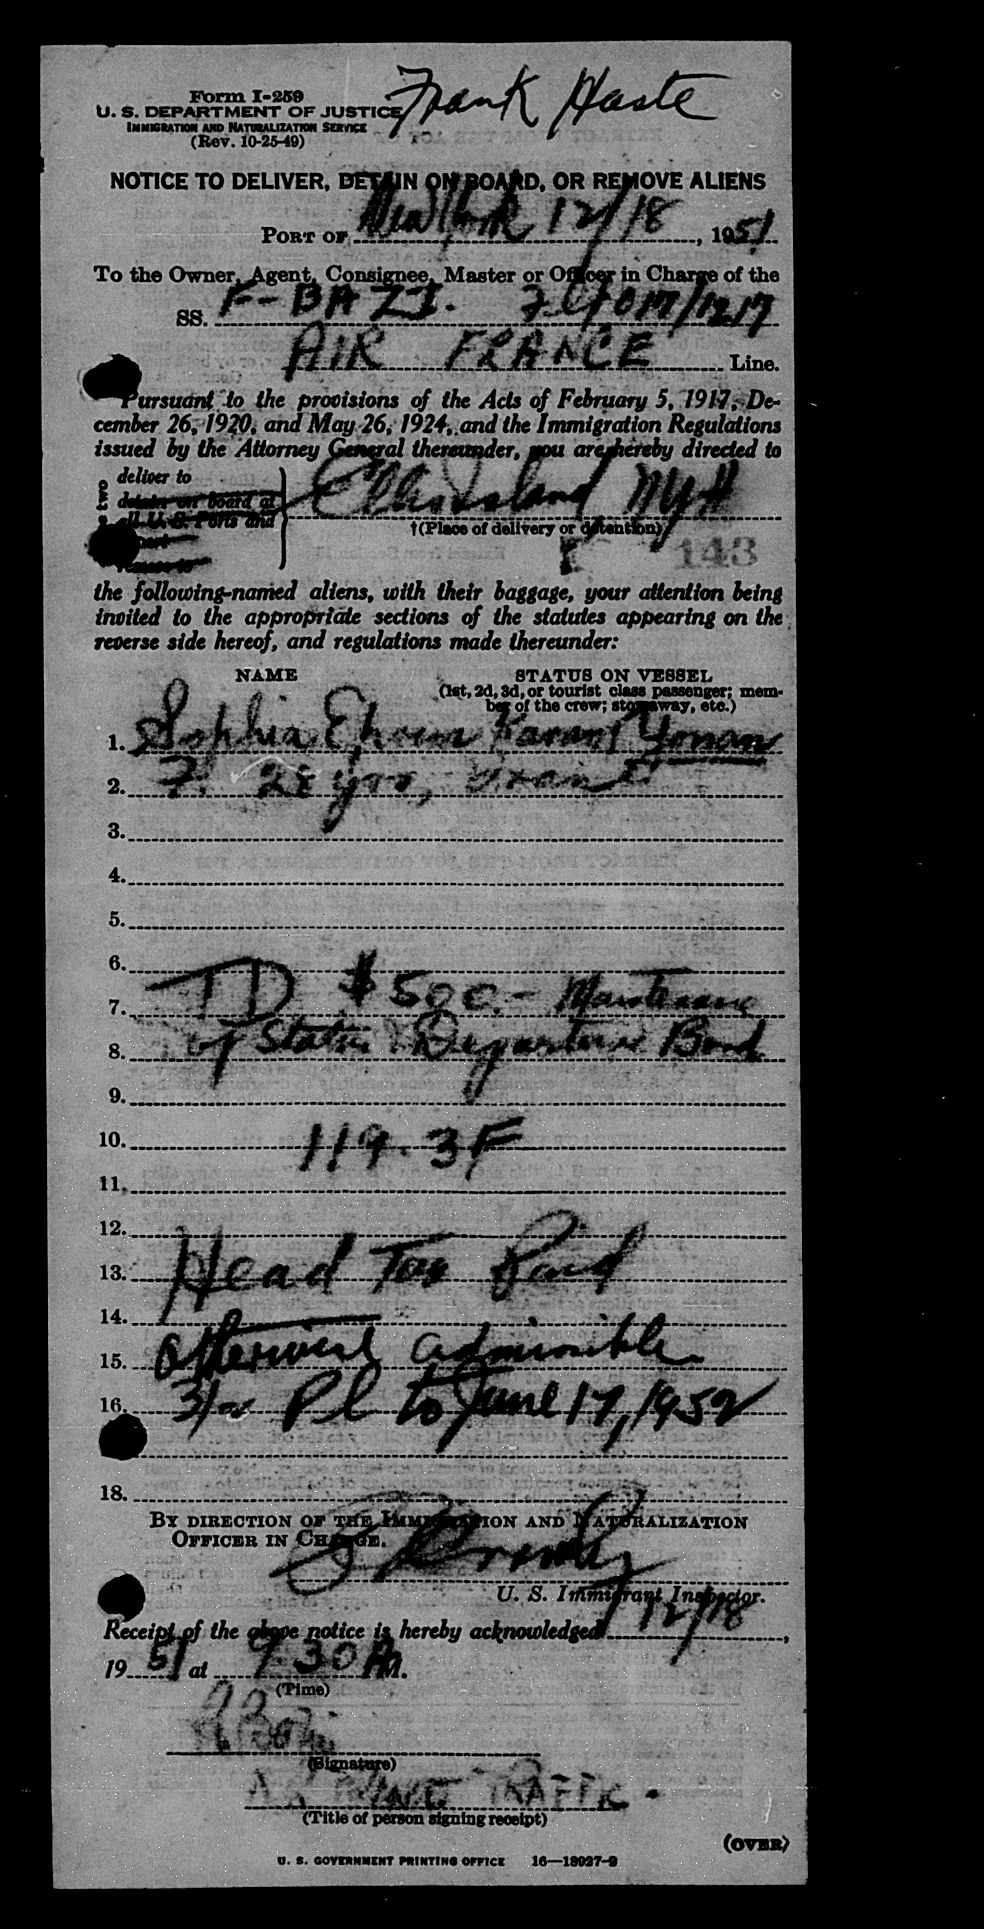 Form I-259
U. S. DEPARTMENT OF JUSTICE Frank Haste
IMMIGRATION AND NATURALIZATION SERVICE
(Rev. 10-25-49)
NOTICE TO DELIVER, DETAIN ON BOARD, OR REMOVE ALIENS
PORT OF New York 12/18, 1951
To the Owner, Agent, Consignee, Master or Officer in Charge of the
SS. F-BAZI. 017/1217
AIR FRANCE Line.
Pursuant to the provisions of the Acts of February 5, 1917, De-
cember 26, 1920, and May 26, 1924, and the Immigration Regulations
issued by the Attorney General thereunder, you are hereby directed to
deliver to
detain on board at
all U. S. Ports and
Ellis Island NYH
†(Place of delivery or detention)
143
the following-named aliens, with their baggage, your attention being
invited to the appropriate sections of the statutes appearing on the
reverse side hereof, and regulations made thereunder:
NAME STATUS ON VESSEL
(1st, 2d, 3d, or tourist class passenger; mem-
ber of the crew; stowaway, etc.)
1. Sophia Yonan
2. F. 28 yrs,
3.
4.
5.
6.
7. TD $500.- Maintenance
8. of Status & Departure Bond
9.
10. 119.3F
11.
12.
13. Head Tax Paid
14.
15. Otherwise admissible
16. 3/2 Pl to June 17, 1952
18.
BY DIRECTION OF THE IMMIGRATION AND NATURALIZATION
OFFICER IN CHARGE.
U. S. Immigrant Inspector.
Receipt of the above notice is hereby acknowledged 12/18,
1951 at 9:30 Am.
(Time)
(Signature)
AIR FRANCE TRAFFIC.
(Title of person signing receipt)
(OVER)
U. S. GOVERNMENT PRINTING OFFICE 16—18027-2